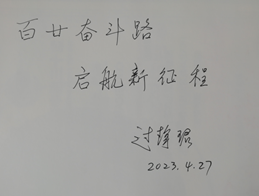 百廿奋斗路
启航新征程
过静珺
2023.4.27